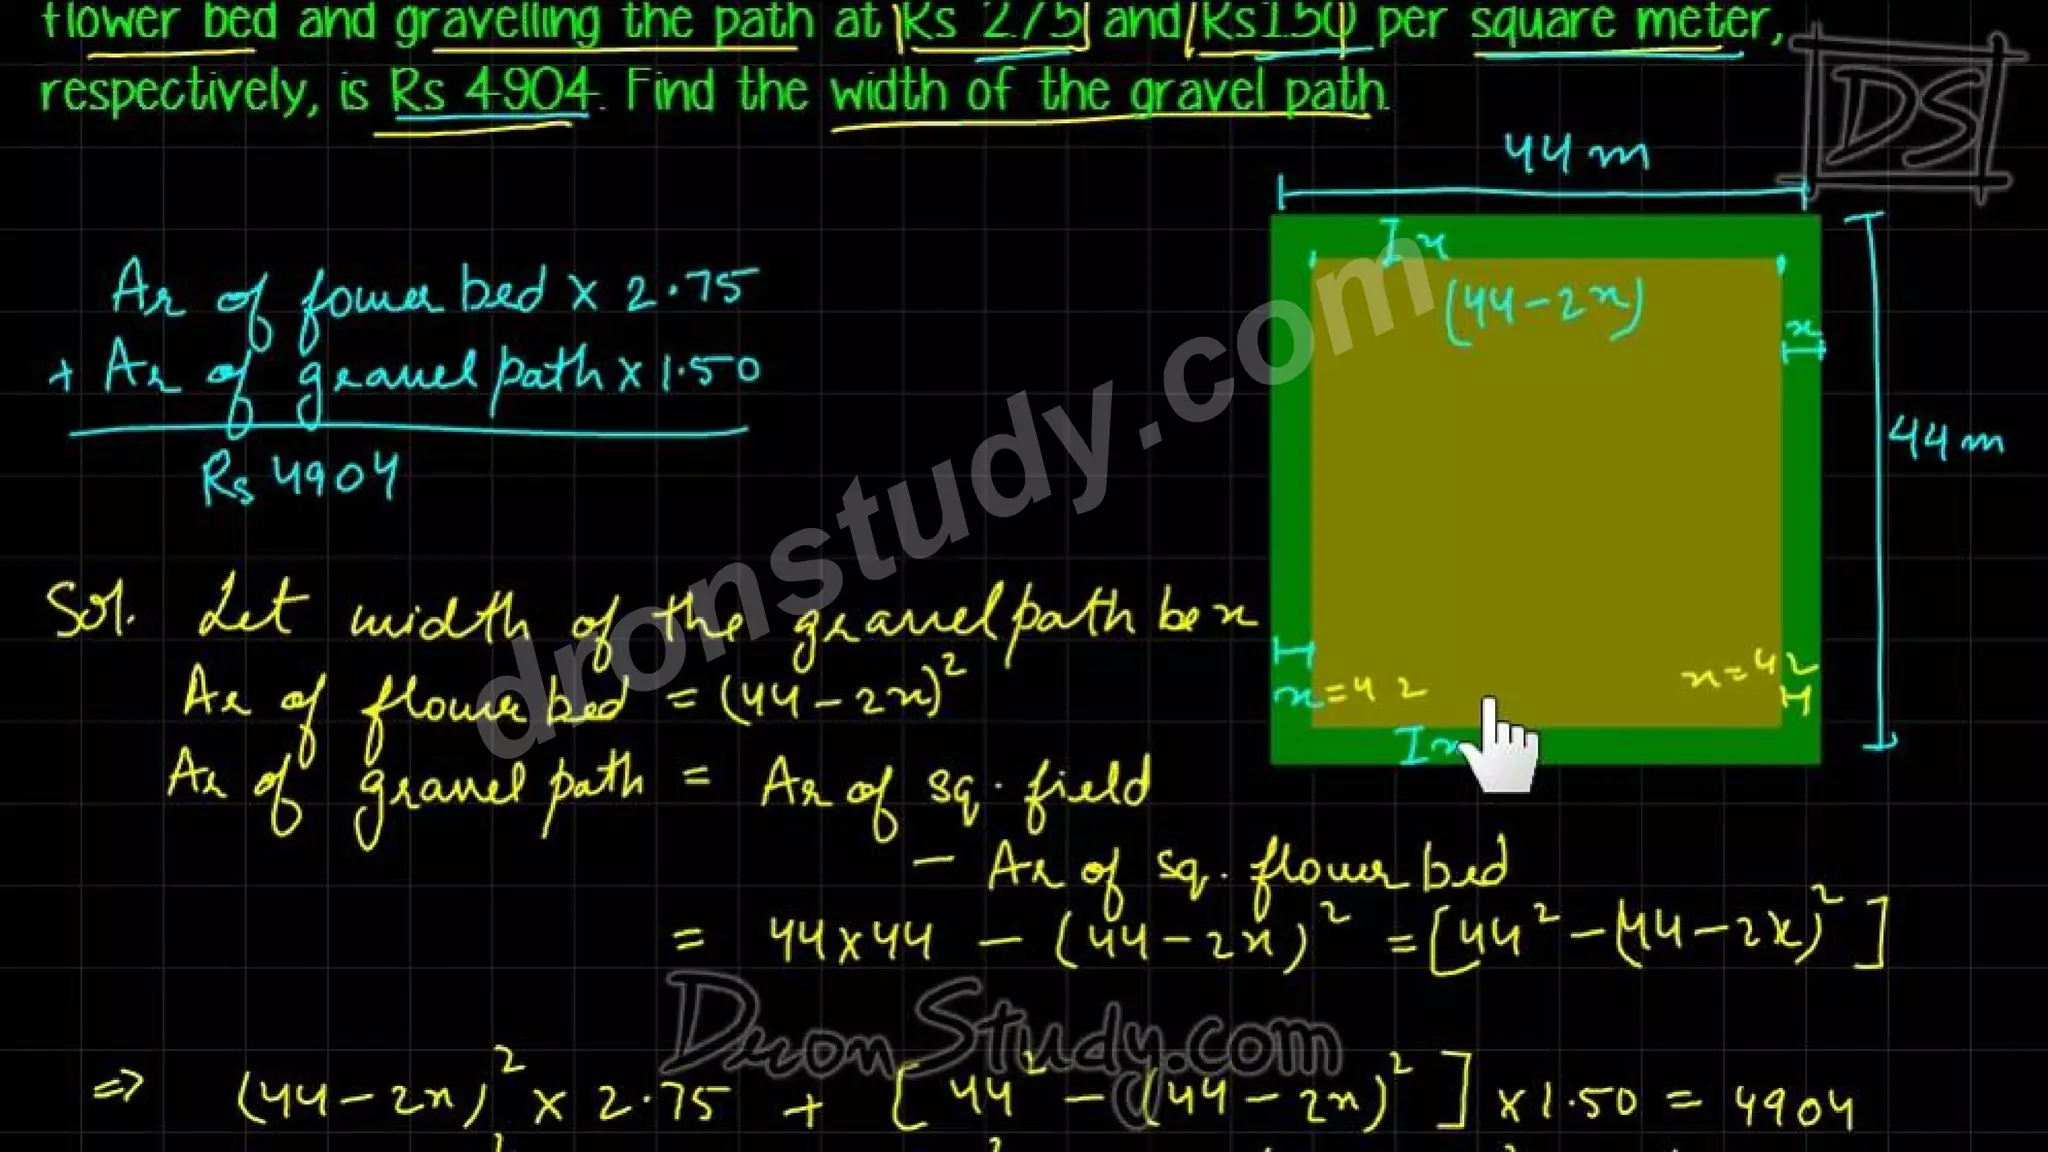 flower bed and gravelling the path at Rs 2.75 and Rs1.50 per square meter,
respectively, is Rs 4904. Find the width of the gravel path.
DS
44 m
Ar of fower bed x 2.75
+ Ar of gravel path x 1.50
Rs 4904
I x
(44-2x)
x
44 m
Sol. Let width of the gravel path be x
Ar of flower bed = (44-2x)²
x=42
x=42
I x
Ar of gravel path = Ar of sq. field
- Ar of sq. flower bed
= 44x44 - (44-2x)² = [44² - (44-2x)²]
=> (44-2x)² x 2.75 + [44² - (44-2x)²] x 1.50 = 4904
dronstudy.com
DronStudy.com